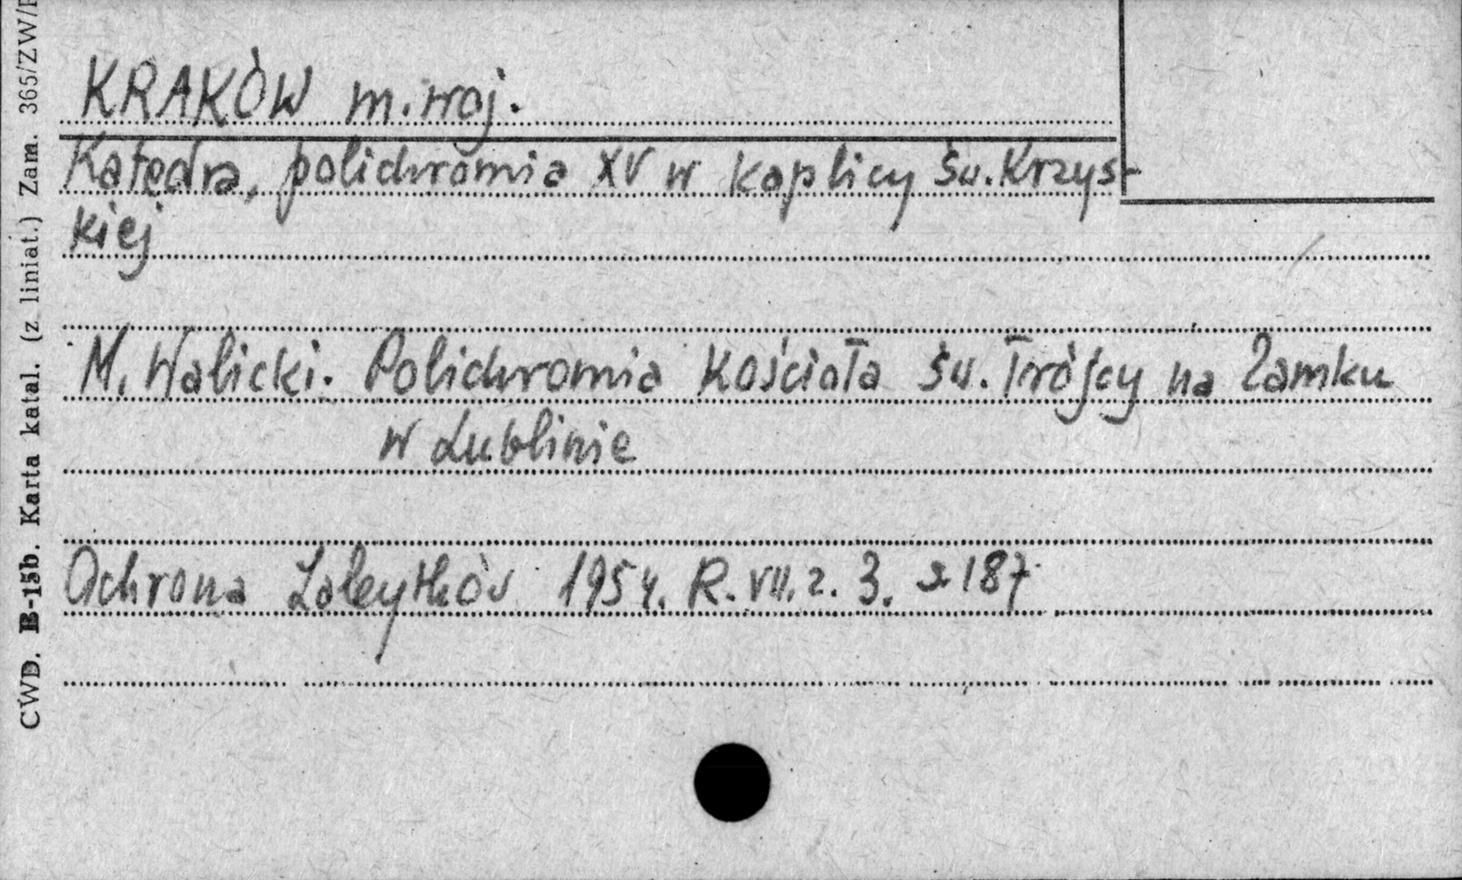 KRAKÓW m. woj.
Katedra, polichromia XV w kaplicy św. Krzys-
kiej
M. Walicki. Polichromia Kościoła św. Trójcy na Zamku
w Lublinie
Ochrona Zabytków 1954. R. VII. z. 3. s 187
CWD. B-15b. Karta katal. (z liniat.) Zam. 365/ZW/